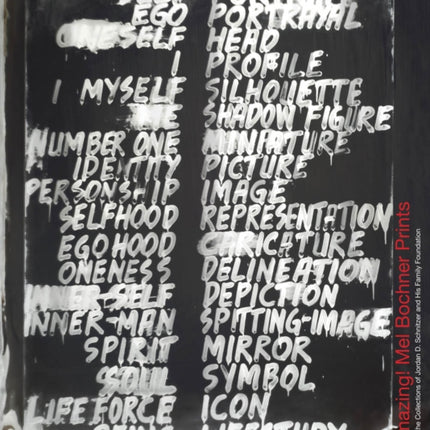 EGO PORTRAYAL
ONESELF HEAD
I PROFILE
I MYSELF SILHOUETTE
ME SHADOW FIGURE
NUMBER ONE MINIATURE
IDENTITY PICTURE
PERSONSHIP IMAGE
SELFHOOD REPRESENTATION
EGOHOOD CARICATURE
ONENESS DELINEATION
INNER-SELF DEPICTION
INNER-MAN SPITTING-IMAGE
SPIRIT MIRROR
SOUL SYMBOL
LIFE FORCE ICON
Mel Bochner Prints
the Collections of Jordan D. Schnitzer and His Family Foundation